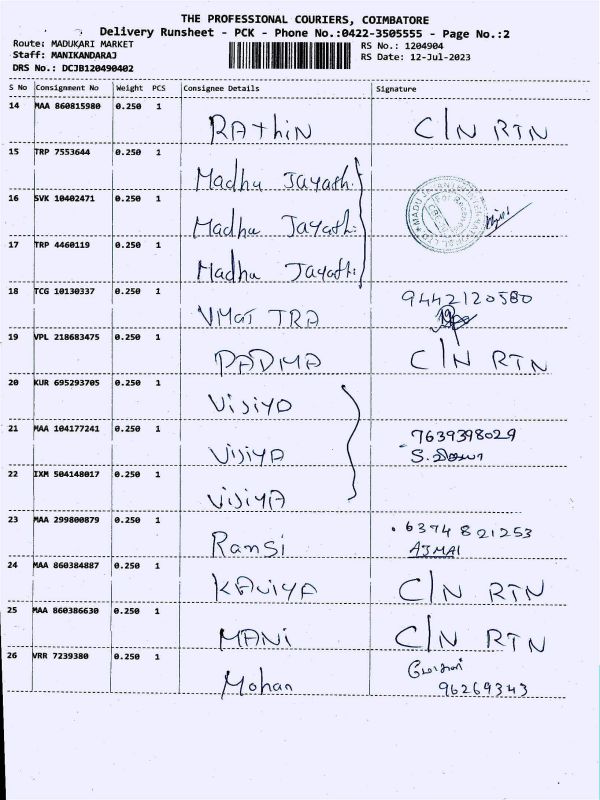 THE PROFESSIONAL COURIERS, COIMBATORE
Delivery Runsheet - PCK - Phone No.:0422-3505555 - Page No.:2
Route: MADUKARI MARKET RS No.: 1204904
Staff: MANIKANDARAJ RS Date: 12-Jul-2023
DRS No.: DCJB120490402
S No Consignment No Weight PCS Consignee Details Signature
14 MAA 860815980 0.250 1 RAthiN C/N RTN
15 TRP 7553644 0.250 1 Madhu Jayath.
16 SVK 10402471 0.250 1 Madhu Jayath.
17 TRP 4460119 0.250 1 Madhu Jayathi
18 TCG 10130337 0.250 1 VMGT TRA 9442120580
19 VPL 218683475 0.250 1 PADMA C/N RTN
20 KUR 695293705 0.250 1 ViJiYD
21 MAA 104177241 0.250 1 ViJiYA 7639398029
22 IXM 504148017 0.250 1 ViJiYA
23 MAA 299800879 0.250 1 Ransi 6374821253
AJMAl
24 MAA 860384887 0.250 1 KAViYA C/N RTN
25 MAA 860386630 0.250 1 MANi C/N RTN
26 VRR 7239380 0.250 1 Mohan மோகன்
96269343